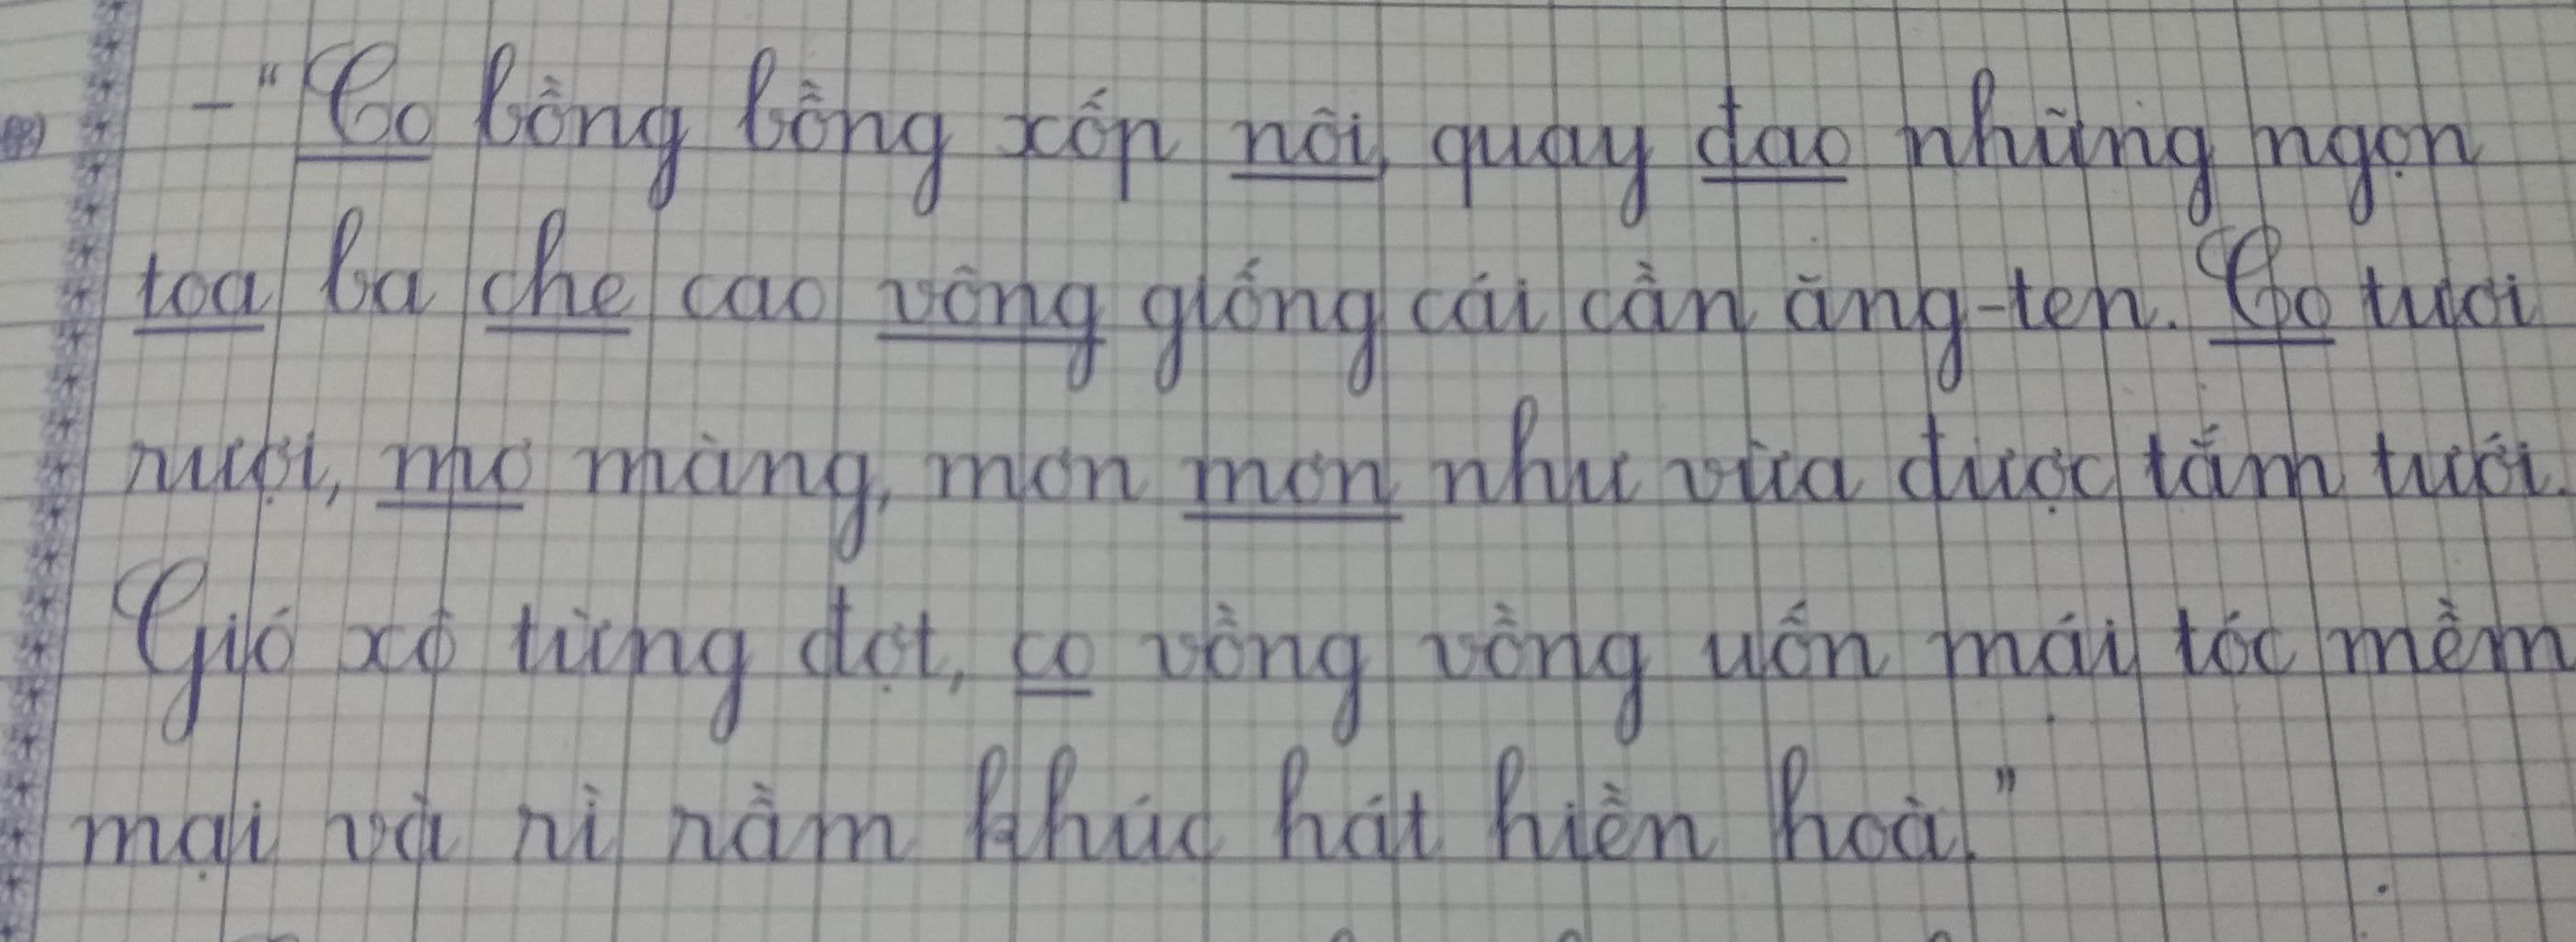 - "Co bồng bồng xốp nôi, quay đao những ngọn
toa ba che cao vông giống cái cần ăng-ten. Co tươi
rượi, mơ màng, mơn mon như vừa được tắm tưới.
Gió xô từng đợt, co vồng vồng uốn mái tóc mềm
mại và rì rầm khúc hát hiền hoà."